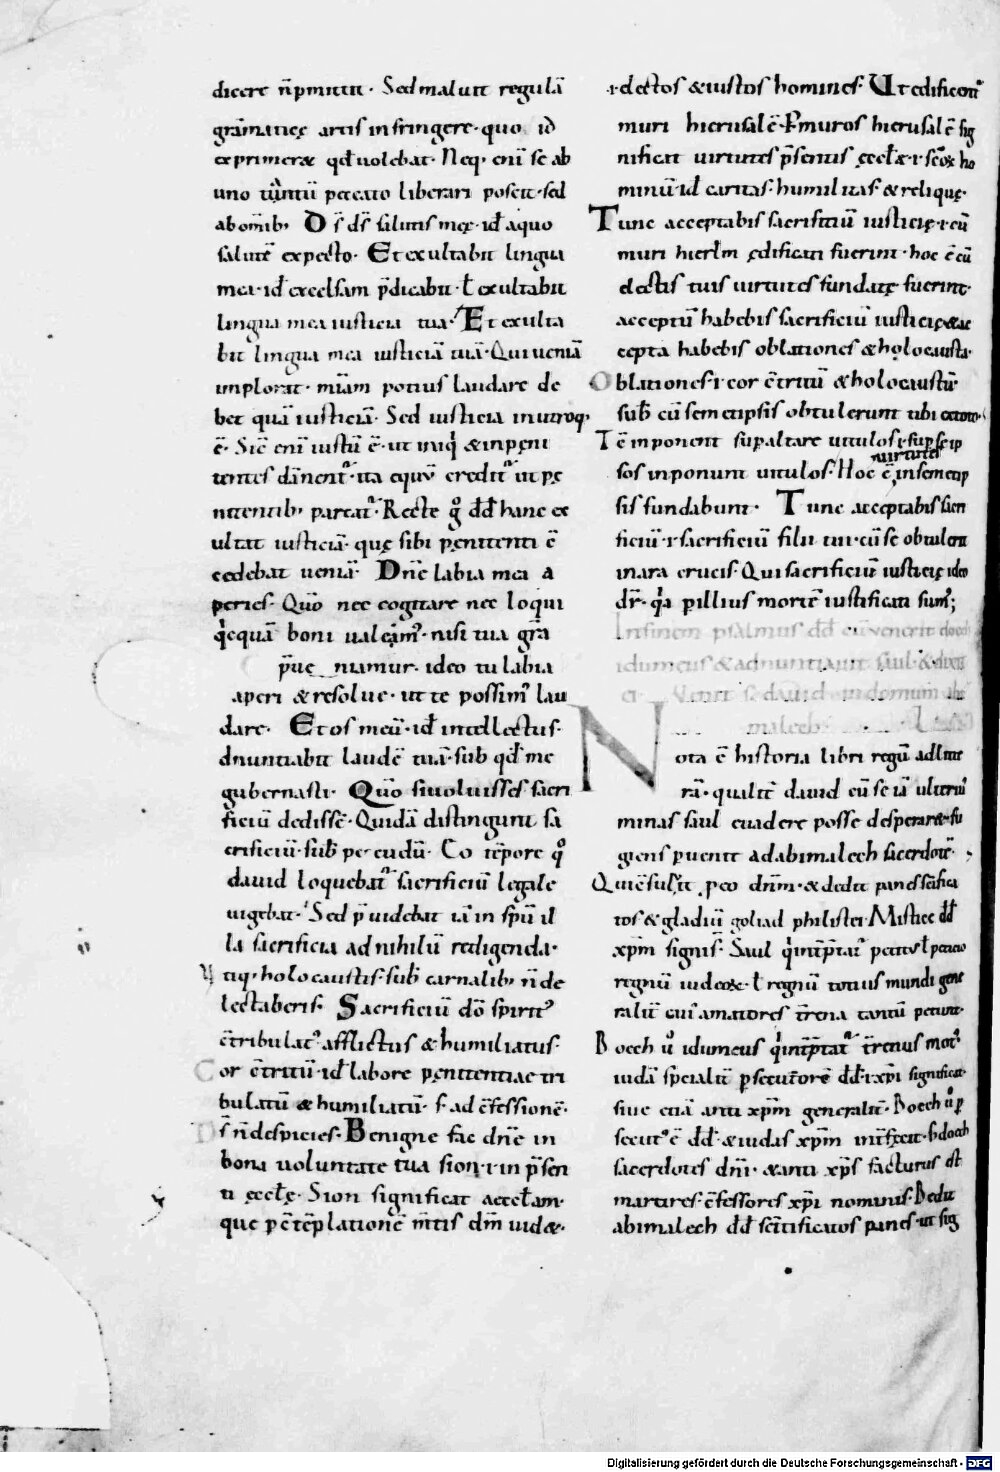 dicere n̄ p̄mittit · Sed maluit regulā
grāmaticę artis infringere · quo id
exprimeret qđ uolebat · Neq; enī se ab
uno tātū peccato liberari poscit · sed
ab om̄ib; D̄s d̄s salutis meę · id̄ a quo
salutē expecto · Et exultabit lingua
mea · id̄ excelsam p̄dicabit · ł exultabit
lingua mea iusticiā tuā · Et exulta
bit lingua mea iusticiā tuā · Qui ueniā
implorat · mīam potius laudare de
bet quā iusticiā · Sed iusticia in utroq;
ē · Sic enī iustū ē · ut iniq̄ & inpęni
tentes dānent᷑ · ita equū credit᷑ ut pę
nitentib; parcat᷑ · Recte g̊ dđ hanc ex
ultat iusticiā · quę sibi pęnitenti c̄
cedebat ueniā · Dn̄e labia mea a
peries · Quō nec cogitare nec loqui
q̇cquā boni ualeam᷒ · nisi tua gr̄a
p̄ueniamur · ideo tu labia
aperi & resolue · ut te possim᷒ lau
dare · Et os meū · id̄ intellectus ·
adnuntiabit laudē tuā · sub qđ me
gubernasti · Quō si uoluisses sacri
ficiū dedissē · Quidā distingunt sa
crificiū · sub̄ pecudū · Eo tēpore q̊
dauid loquebat᷑ sacrificiū legale
uigebat · Sed p̄uidebat iā in sp̄u il
la sacrificia ad nihilū redigenda ·
Vtiq; holocaustis · sub̄ carnalib; n̄ de
lectaberis · Sacrificiū dō spirit᷒
c̄tribulat᷒ afflictus & humiliatus ·
Cor c̄tritū · id̄ labore pęnitentiae tri
bulatū & humiliatū · s · ad c̄fessionē ·
D̄s n̄ despicies · Benigne fac dn̄e in
bona uoluntate tua sion · i · in p̄sen
ti ęccłę · Sion significat ęccłam ·
que p c̄tēplationē m̄tis dm̄ uidet ·
· i · electos & iustos homines · Ut edificent᷑
muri hierusalē · P muros hierusalē sig
nificat uirtutes p̄sentis ęccłę · i · sc̄orꝫ ho
minū · id̄ caritas · humilitas · & reliquę ·
Tunc acceptabis sacrificiū iusticię · i · cū
muri hierłm ędificati fuerint · hoc ē cū
electis tuis uirtutes fundatę fuerint ·
acceptū habebis sacrificiū iusticię & ac
cepta habebis oblationes & holocausta ·
Oblationes · i · cor c̄tritū & holocaustū ·
sub̄ cū semetipsis obtulerunt tibi
Tc̄ inponent sup altare uitulos · i · sup se ip
uirtutes
sos inponunt uitulos · Hoc ē, in semetip
sis fundabunt · Tunc acceptabis sacri
ficiū · i · sacrificiū filii tui · cū se obtulerit
in ara crucis · Qui sacrificiū iusticię ideo
dr̄ · q̄a p illius mortē iustificati sum᷒;
In finem psalmus dđ cū venerit doech
idumeus & adnuntiauit saul · & dixit
ei · Venit dauid in domum abi
malech ·
Nota ē historia libri regū ad litte
rā · qualit̄ dauid cū se iā ulteri᷒
minas saul euadere posse desperaret · fu
giens puenit ad abimalech sacerdotē ·
Qui c̄suluit p eo dn̄m · & dedit panes sc̄ifica
tos & gladiū goliad philistei · Mistice dđ
xp̄m signis · Saul q̇ int̄p̄tat᷑ petitus ł petitio
regnū iudeorꝫ · ł regnū totius mundi gene
ralit̄ cui᷒ amatores t̄rena tantū petunt ·
Doech ů idumeus q̇ int̄p̄tat᷑ t̄renus mot᷒
iudā specialit̄ psecutorē dđ · i · xp̄i significat ·
siue etiā anti xp̄m generalit̄ · Doech ů p
secut᷒ ē dđ · & iudas xp̄m int̄fecit · s̄ doech
sacerdotes dn̄i · & anti xp̄s facturus est
martires · c̄fessores xp̄i nominis · Dedit
abimalech dđ sc̄ificatos panes · ut sig
Digitalisierung gefördert durch die Deutsche Forschungsgemeinschaft - DFG